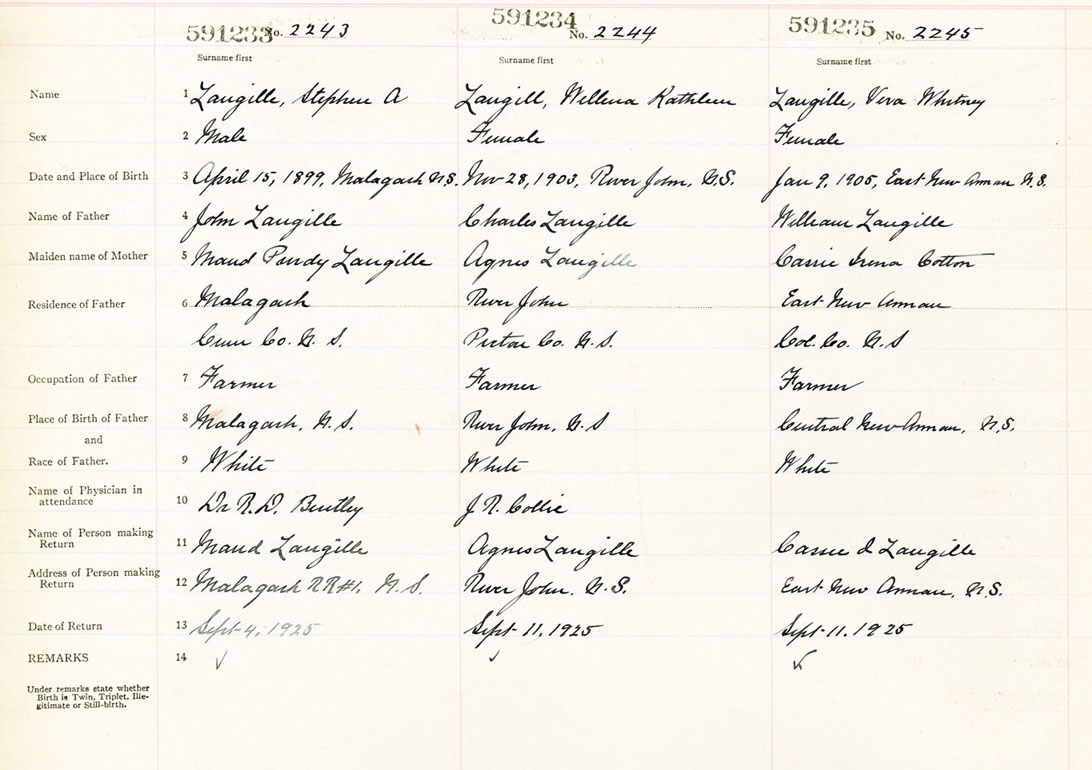 591233 No. 2243 591234 No. 2244 591235 No. 2245
Surname first Surname first Surname first
Name 1 Langille, Stephen A Langill, Wellena Kathleen Langille, Vera Whitney
Sex 2 Male Female Female
Date and Place of Birth 3 April 15, 1899, Malagash N.S. Nov 28, 1903, River John, N.S. Jan 9, 1905, East New Annan N.S.
Name of Father 4 John Langille Charles Langille William Langille
Maiden name of Mother 5 Maud Purdy Langille Agnes Langille Cassie Irena Cotton
Residence of Father 6 Malagash River John East New Annan
Cum Co. N. S. Pictou Co. N. S. Col. Co. N. S
Occupation of Father 7 Farmer Farmer Farmer
Place of Birth of Father 8 Malagash, N. S. River John, N. S Central New Annan, N.S.
and
Race of Father. 9 White White White
Name of Physician in
attendance 10 Dr R. D. Bentley J. R. Collie
Name of Person making
Return 11 Maud Langille Agnes Langille Cassie I Langille
Address of Person making
Return 12 Malagash RR#1. N. S. River John. N. S. East New Annan, N.S.
Date of Return 13 Sept 4, 1925 Sept 11, 1925 Sept 11. 1925
REMARKS 14
Under remarks state whether
Birth is Twin, Triplet, Ille-
gitimate or Still-birth.